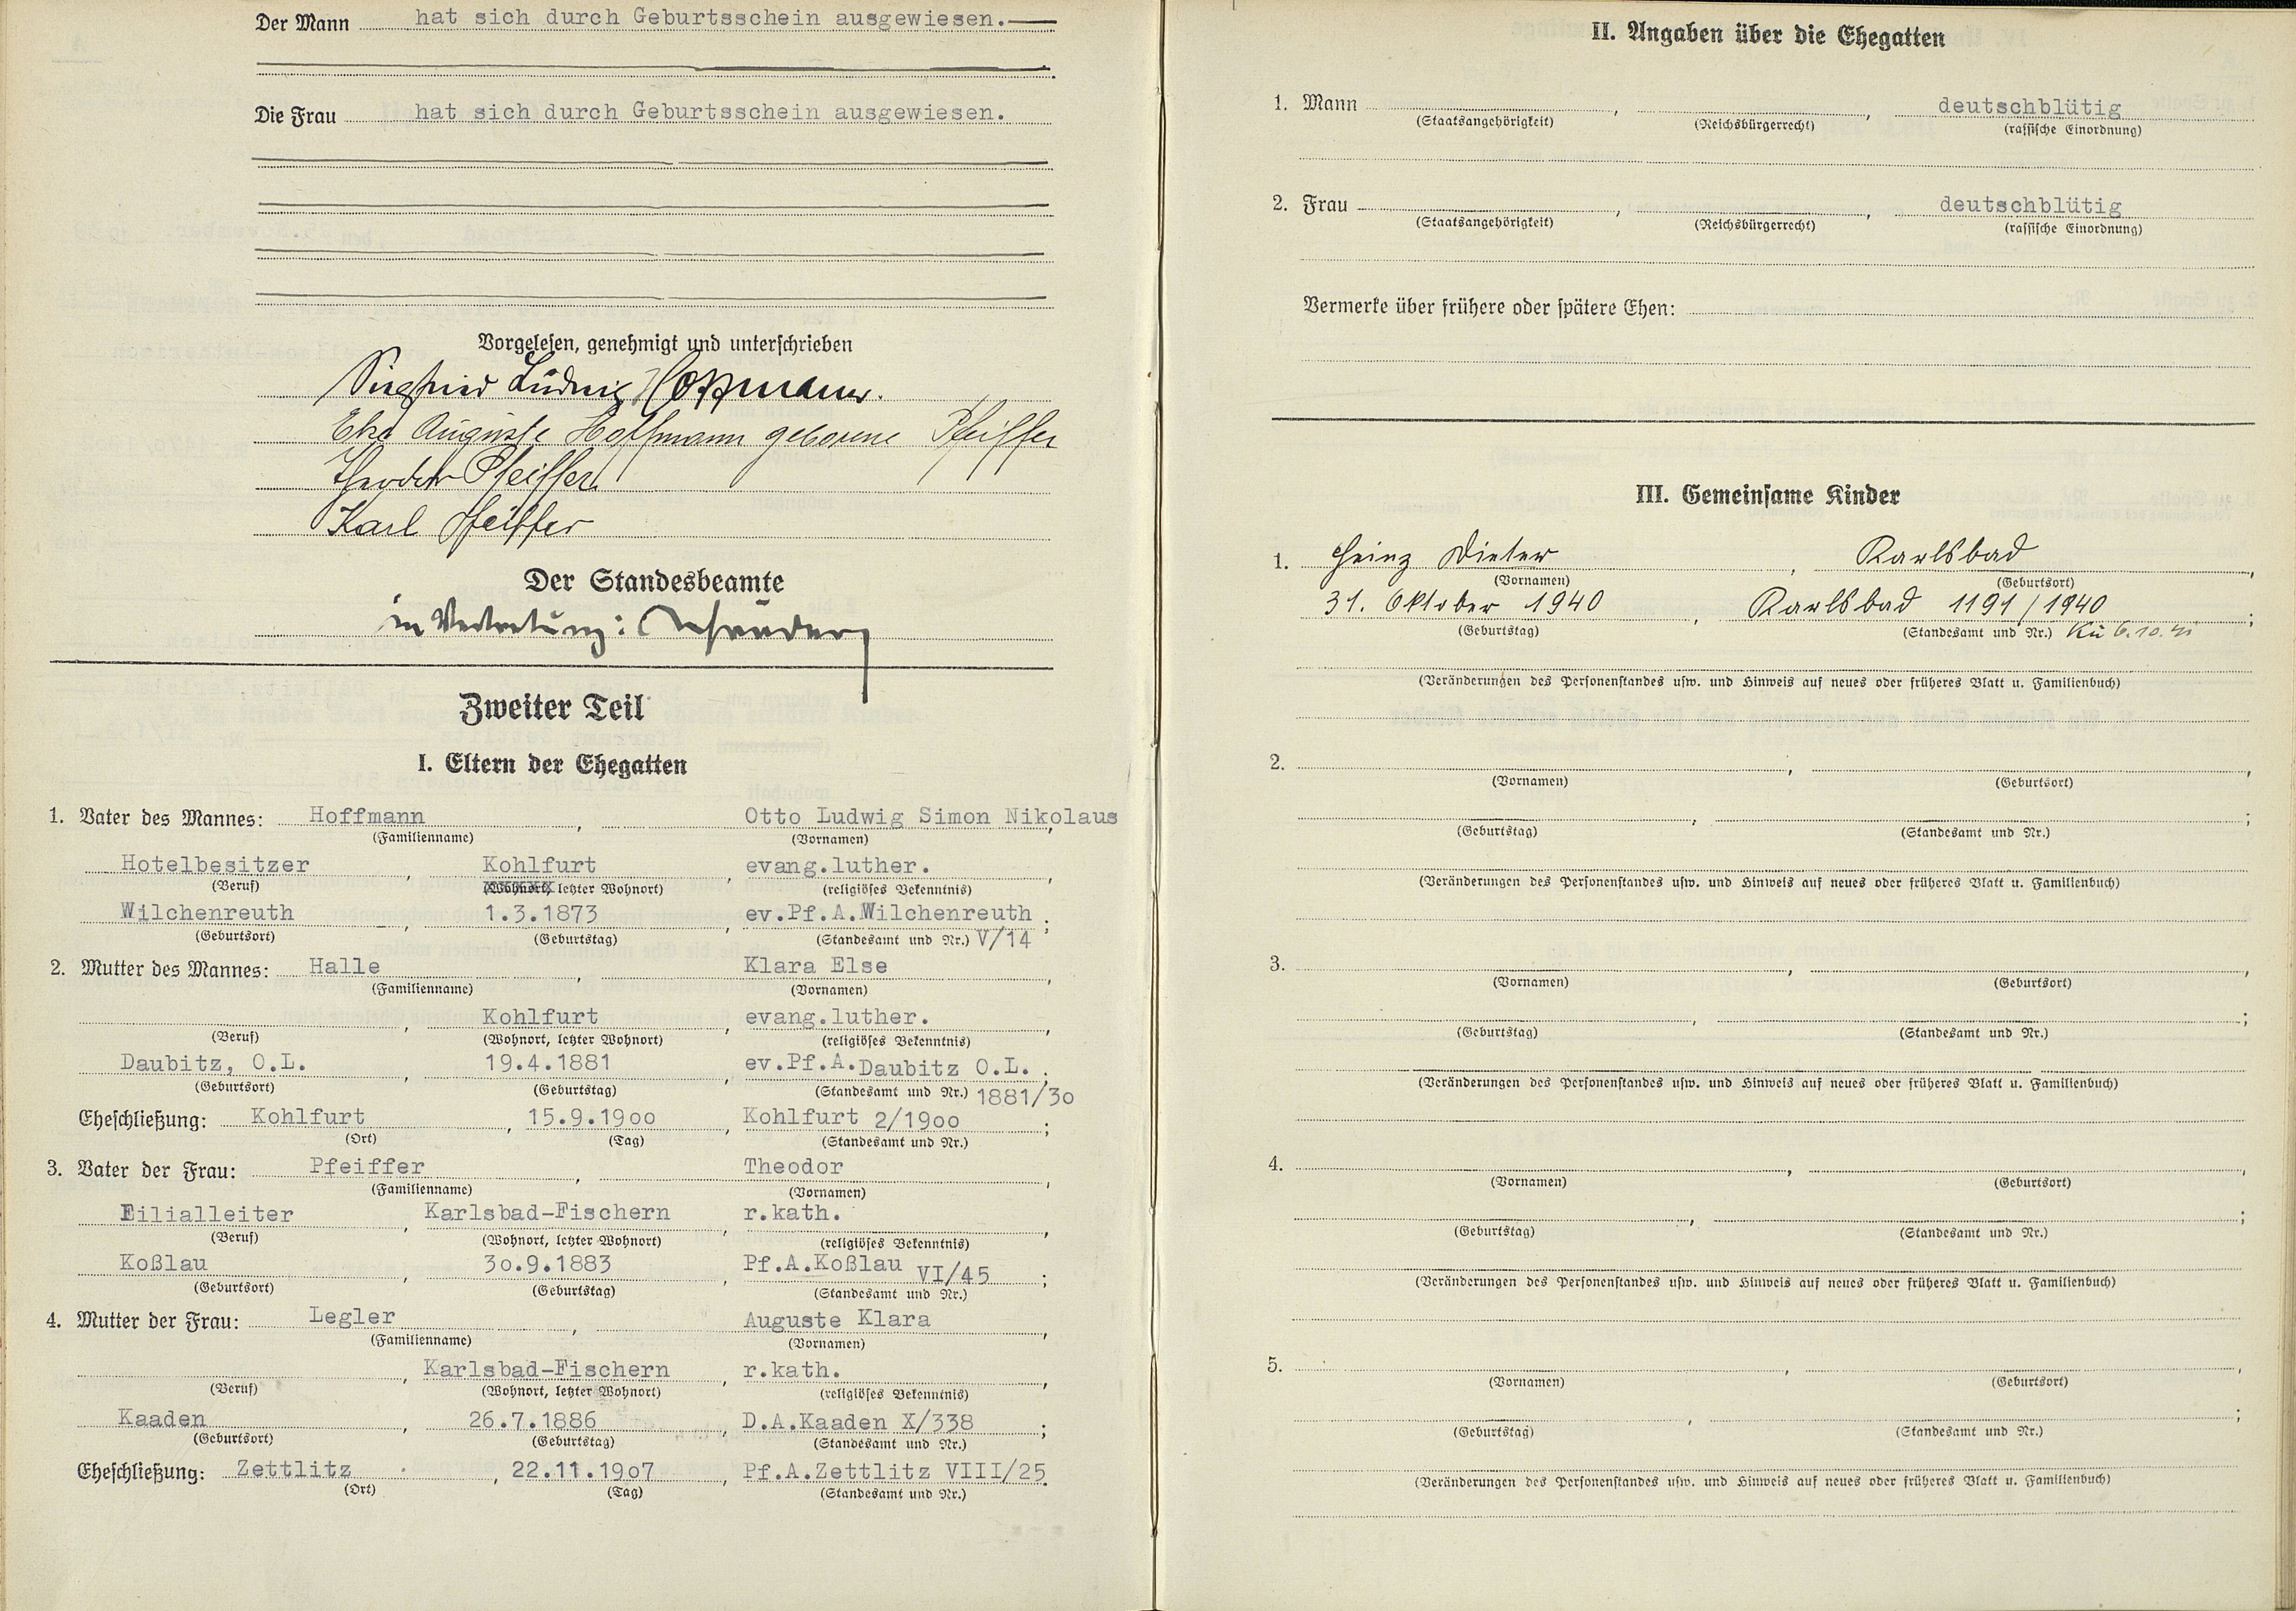 Der Mann hat sich durch Geburtsschein ausgewiesen.
Die Frau hat sich durch Geburtsschein ausgewiesen.
Vorgelesen, genehmigt und unterschrieben
Siegfried Ludwig Hoffmann.
Auguste Hoffmann geborene Pfeiffer
Theodor Pfeiffer
Karl Pfeiffer
Der Standesbeamte
in Vertretung:
Zweiter Teil
I. Eltern der Ehegatten
1. Vater des Mannes: Hoffmann, Otto Ludwig Simon Nikolaus,
(Familienname) (Vornamen)
Hotelbesitzer, Kohlfurt, evang.luther.,
(Beruf) (Wohnort, letzter Wohnort) (religiöses Bekenntnis)
Wilchenreuth, 1.3.1873, ev.Pf.A.Wilchenreuth;
(Geburtsort) (Geburtstag) (Standesamt und Nr.) V/14
2. Mutter des Mannes: Halle, Klara Else
(Familienname) (Vornamen)
, Kohlfurt, evang.luther.,
(Beruf) (Wohnort, letzter Wohnort) (religiöses Bekenntnis)
Daubitz, O.L., 19.4.1881, ev.Pf.A.Daubitz O.L.;
(Geburtsort) (Geburtstag) (Standesamt und Nr.) 1881/3o
Eheschließung: Kohlfurt, 15.9.19oo, Kohlfurt 2/19oo;
(Ort) (Tag) (Standesamt und Nr.)
3. Vater der Frau: Pfeiffer, Theodor,
(Familienname) (Vornamen)
Filialleiter, Karlsbad-Fischern, r.kath.,
(Beruf) (Wohnort, letzter Wohnort) (religiöses Bekenntnis)
Koßlau, 3o.9.1883, Pf.A.Koßlau VI/45;
(Geburtsort) (Geburtstag) (Standesamt und Nr.)
4. Mutter der Frau: Legler, Auguste Klara,
(Familienname) (Vornamen)
, Karlsbad-Fischern, r.kath.,
(Beruf) (Wohnort, letzter Wohnort) (religiöses Bekenntnis)
Kaaden, 26.7.1886, D.A.Kaaden X/338;
(Geburtsort) (Geburtstag) (Standesamt und Nr.)
Eheschließung: Zettlitz, 22.11.19o7, Pf.A.Zettlitz VIII/25.
(Ort) (Tag) (Standesamt und Nr.)
II. Angaben über die Ehegatten
1. Mann , , deutschblütig
(Staatsangehörigkeit) (Reichsbürgerrecht) (rassische Einordnung)
2. Frau , , deutschblütig
(Staatsangehörigkeit) (Reichsbürgerrecht) (rassische Einordnung)
Vermerke über frühere oder spätere Ehen:
III. Gemeinsame Kinder
1. Heinz Dieter, Karlsbad,
(Vornamen) (Geburtsort)
31. Oktober 1940, Karlsbad 1191/1940;
(Geburtstag) (Standesamt und Nr.)
(Veränderungen des Personenstandes usw. und Hinweis auf neues oder früheres Blatt u. Familienbuch)
2. , ,
(Vornamen) (Geburtsort)
, ;
(Geburtstag) (Standesamt und Nr.)
(Veränderungen des Personenstandes usw. und Hinweis auf neues oder früheres Blatt u. Familienbuch)
3. , ,
(Vornamen) (Geburtsort)
, ;
(Geburtstag) (Standesamt und Nr.)
(Veränderungen des Personenstandes usw. und Hinweis auf neues oder früheres Blatt u. Familienbuch)
4. , ,
(Vornamen) (Geburtsort)
, ;
(Geburtstag) (Standesamt und Nr.)
(Veränderungen des Personenstandes usw. und Hinweis auf neues oder früheres Blatt u. Familienbuch)
5. , ,
(Vornamen) (Geburtsort)
, ;
(Geburtstag) (Standesamt und Nr.)
(Veränderungen des Personenstandes usw. und Hinweis auf neues oder früheres Blatt u. Familienbuch)